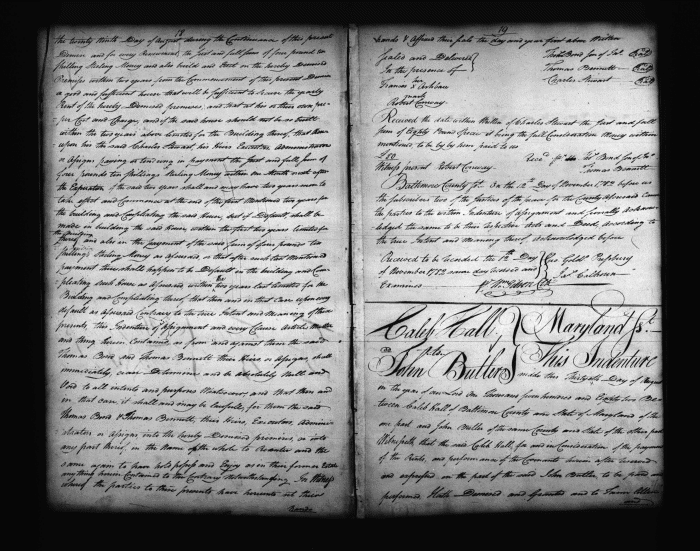 18
the twenty Ninth Day of August during the Continuance of this present
Demise and for every Renewment, the just and full sum of four pound ten
shilling Sterling Money and also build and Erect on the hereby Demised
Premises within two years from the Commencement of this present Demise
a good and sufficient house that will be sufficient to secure the yearly
Rent of the hereby Demised premises, and that at his or their own pro-
per Cost and Charge, and if the said house should not be so built
within the two years above limited for the Building thereof, that then
upon his the said Charles Stewart, his Heirs Executors Administrators
or Assigns paying or tendering in payment the just and full sum of
four pounds ten Shillings Sterling Money within one Month next after
the Expiration of the said two years shall and may have two years more to
take effect and Commence at the end of the first Mentioned two years for
the building and Compleating the said House, but if Default shall be
made in building the said House within the first two years limited for
the building
thereof, and also in the payment of the said sum of four pounds ten
Shillings Sterling Money as aforesaid, or that after such two Mentioned
payment there shall happen to be Default in the building and Com-
pleating such house as aforesaid within the two years last limited for the
Building and Compleating thereof that then and in that Case upon every
default as aforesaid Contrary to the true Intent and Meaning of these
presents this Indenture of Assignment and every Clause Article Matter
and thing herein Contained as from and against them the said
Thomas Bond and Thomas Bennett their Heirs or Assigns shall
immediately cease Determine and be absolutely Null and
Void to all intents and purposes Whatsoever, and that then and
in that case it shall and may be lawful for them the said
Thomas Bond & Thomas Bennett, their Heirs, Executors, Admini-
strators or Assigns into the hereby Demised premises, or into
any part thereof in the Name of the whole to Reenter and the
same again to have hold possess and Enjoy as in their former Estate
anything herein Contained to the Contrary Notwithstanding. In Witness
whereof the parties to these presents have hereunto set their
Hands
19
Hands & Affixed their seals the day and year first above Written
Sealed and Delivered
In the presence of
Thos. Bond Son of Jas. (Seal)
Thomas Bennett (Seal)
Charles Stewart (Seal)
Francis x
mark
Robert Conway
Received the date within Written of Charles Stewart the Just and full
sum of Eighty Pound Specie it being the full Consideration Money within
mentioned to be by him paid to us
£80
Witness present Robert Conway
Thos. Bond Son of Jas.
Thomas Bennett
Baltimore County Sct. On the 12th Day of November 1782 before us
the Subscribers two of the Justices of the peace for the County Aforesaid Came
the parties to the within Indenture of Assignment and severally Acknow-
ledged the same to be their respective Acts and Deeds, according to
the true Intent and Meaning thereof, acknowledged before
Received to be Recorded the 12th Day
of November 1782 same day received and
Examined
Geo. Gould Presbury
Jas. Calhoun
Wm. Gibson Clk
Caleb Hall
to
John Butler
Maryland Sct.
This Indenture
made this Thirtieth Day of August
in the year of our Lord One Thousand Seven hundred and Eighty two Be-
tween Caleb Hall of Baltimore County and State of Maryland of the
one part and John Butler of the same County and State of the other part
Witnesseth that the said Caleb Hall, for and in Consideration of the payment
of the Rents, and performance of the Covenants herein after reserved
and expressed on the part of the said John Butler, to be paid and
performed Hath Demised and Granted and to Farm Letten